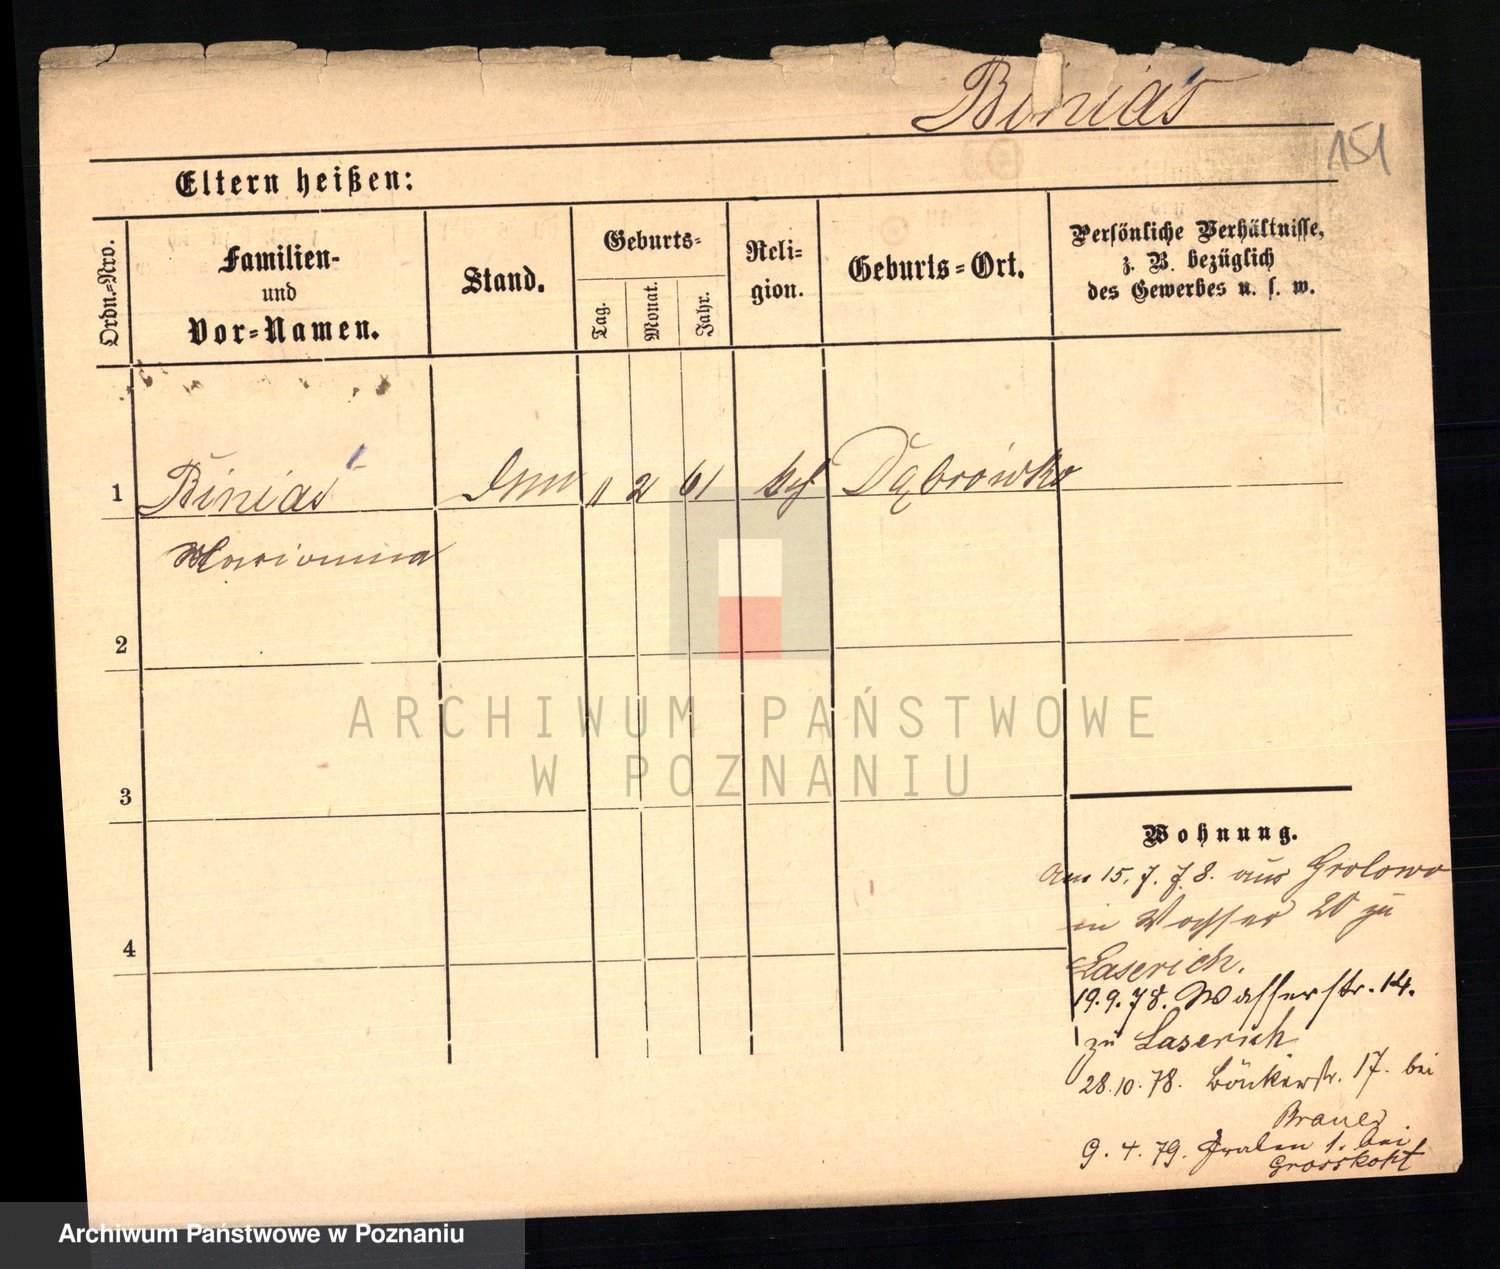 Biniaś
151
Eltern heißen:
Ordn.-Nro.
Familien-
und
Vor-Namen.
Stand.
Geburts-
Tag.
Monat.
Jahr.
Reli-
gion.
Geburts-Ort.
Persönliche Verhältnisse,
z. B. bezüglich
des Gewerbes u. s. w.
1 Biniaś 11 2 61 Dąbrówka
Marianna
2
3
4
Wohnung.
Am 15. 7. 78. aus Grolowo
in Wasser 20 zu
Laserich.
19. 9. 78. Wasserstr. 14.
zu Laserich
28. 10. 78. 17. bei
Brauer
9. 4. 79. Graben 1. bei
Grosskopf
ARCHIWUM PAŃSTWOWE
W POZNANIU
Archiwum Państwowe w Poznaniu